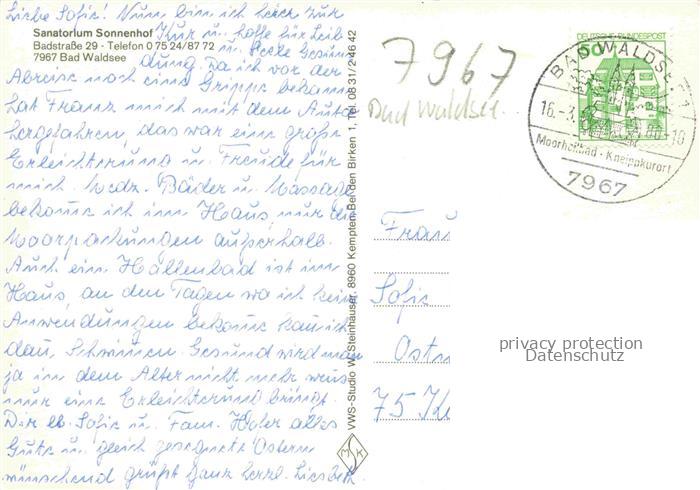 Liebe Sofie! Nun bin ich hier zur
Sanatorium Sonnenhof
Badstraße 29 - Telefon 0 75 24/87 72
7967 Bad Waldsee
Kur u. hoffe für Leib
u. Seele Gesun
dung. Da ich vor der
Abreise noch eine Grippe bekam
hat Franz mich mit dem Auto
hergefahren, das war eine große
Erleichterung u. Freude für
mich. Mediz. Bäder u. Massage
bekome ich im Haus, nur die
Moorpackungen außerhalb.
Auch ein Hallenbad ist im
Haus, an den Tagen wo ich kein
Anwendungen bekome kan ich
dan, Schwimen. Gesund wird man
ja in dem Alter nicht mehr, wens
nur eine Erleichterung bringt.
Dir lb. Sofie u. Fam. alles
Gute u. gleich gesegnete Ostern
wünschend grüßt ganz herzl. Liesbeth
VWS-Studio W. Steinhauser, 8960 Kempten Bei den Birken 1, Tel. 08 31/2 46 42
MSK
7967
Bad Waldsee
DEUTSCHE BUNDESPOST
50
BAD WALDSEE
16.-3. 80-10
Moorheilbad - Kneippkurort
7967
Frau
Sofie
75 K
privacy protection
Datenschutz